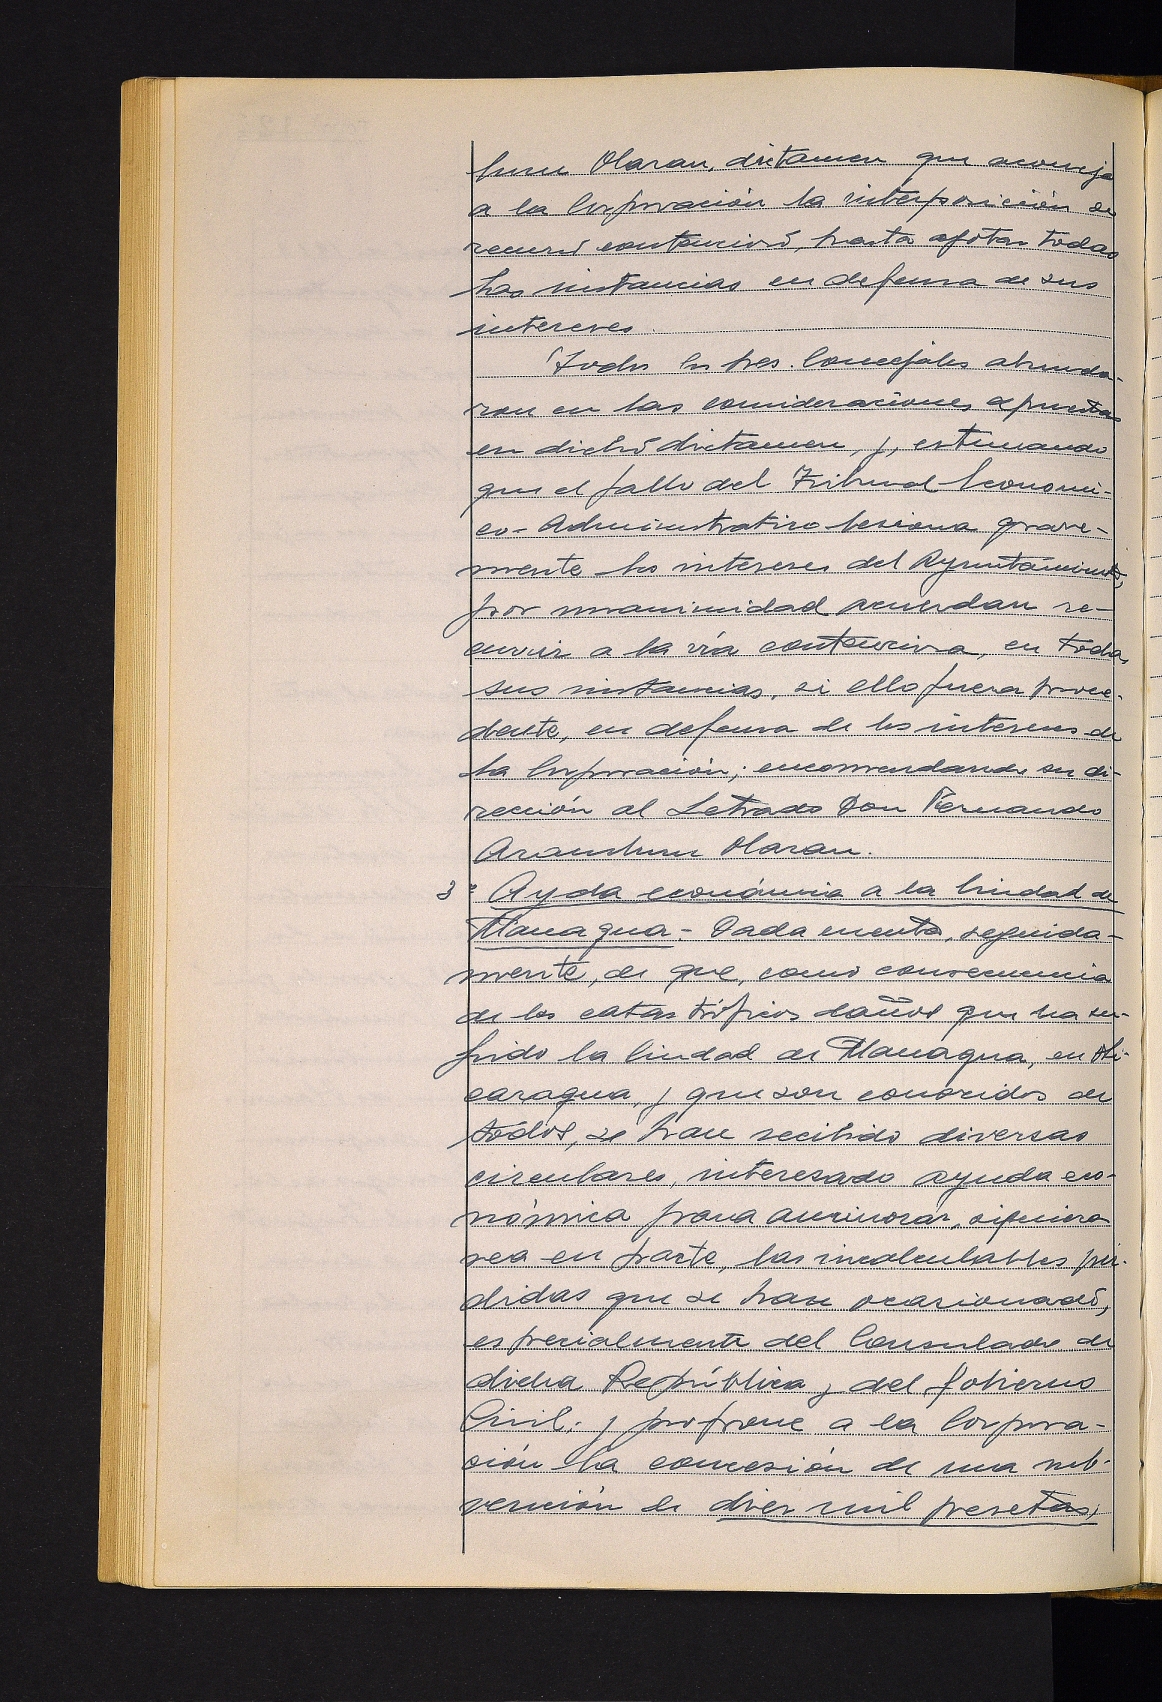 buru Olaran, dictamen que aconseja
a la Corporación la interposición de
recurso contencioso, hasta agotar todas
las instancias en defensa de sus
intereses.
Todos los Sres. Concejales abunda-
ron en las consideraciones expuestas
en dicho dictamen, y, estimando
que el fallo del Tribunal Económi-
co-Administrativo lesiona grave-
mente los intereses del Ayuntamiento,
por unanimidad acuerdan re-
currir a la vía contenciosa, en todas
sus instancias, si ello fuera proce-
dente, en defensa de los intereses de
la Corporación; encomendando su di-
rección al Letrado Don Fernando
Aramburu Olaran.
3º Ayuda económica a la Ciudad de
Managua - Dada cuenta, seguida-
mente, de que, como consecuencia
de los catastróficos daños que ha su-
frido la Ciudad de Managua, en Ni-
caragua, y que son conocidos de
todos, se han recibido diversas
circulares, interesado ayuda eco-
nómica para aminorar, siquiera
sea en parte, las incalculables pér-
didas que se han ocasionado,
especialmente del Consulado de
dicha República y del Gobierno
Civil; y propone a la Corpora-
ción la concesión de una sub-
vención de diez mil pesetas,